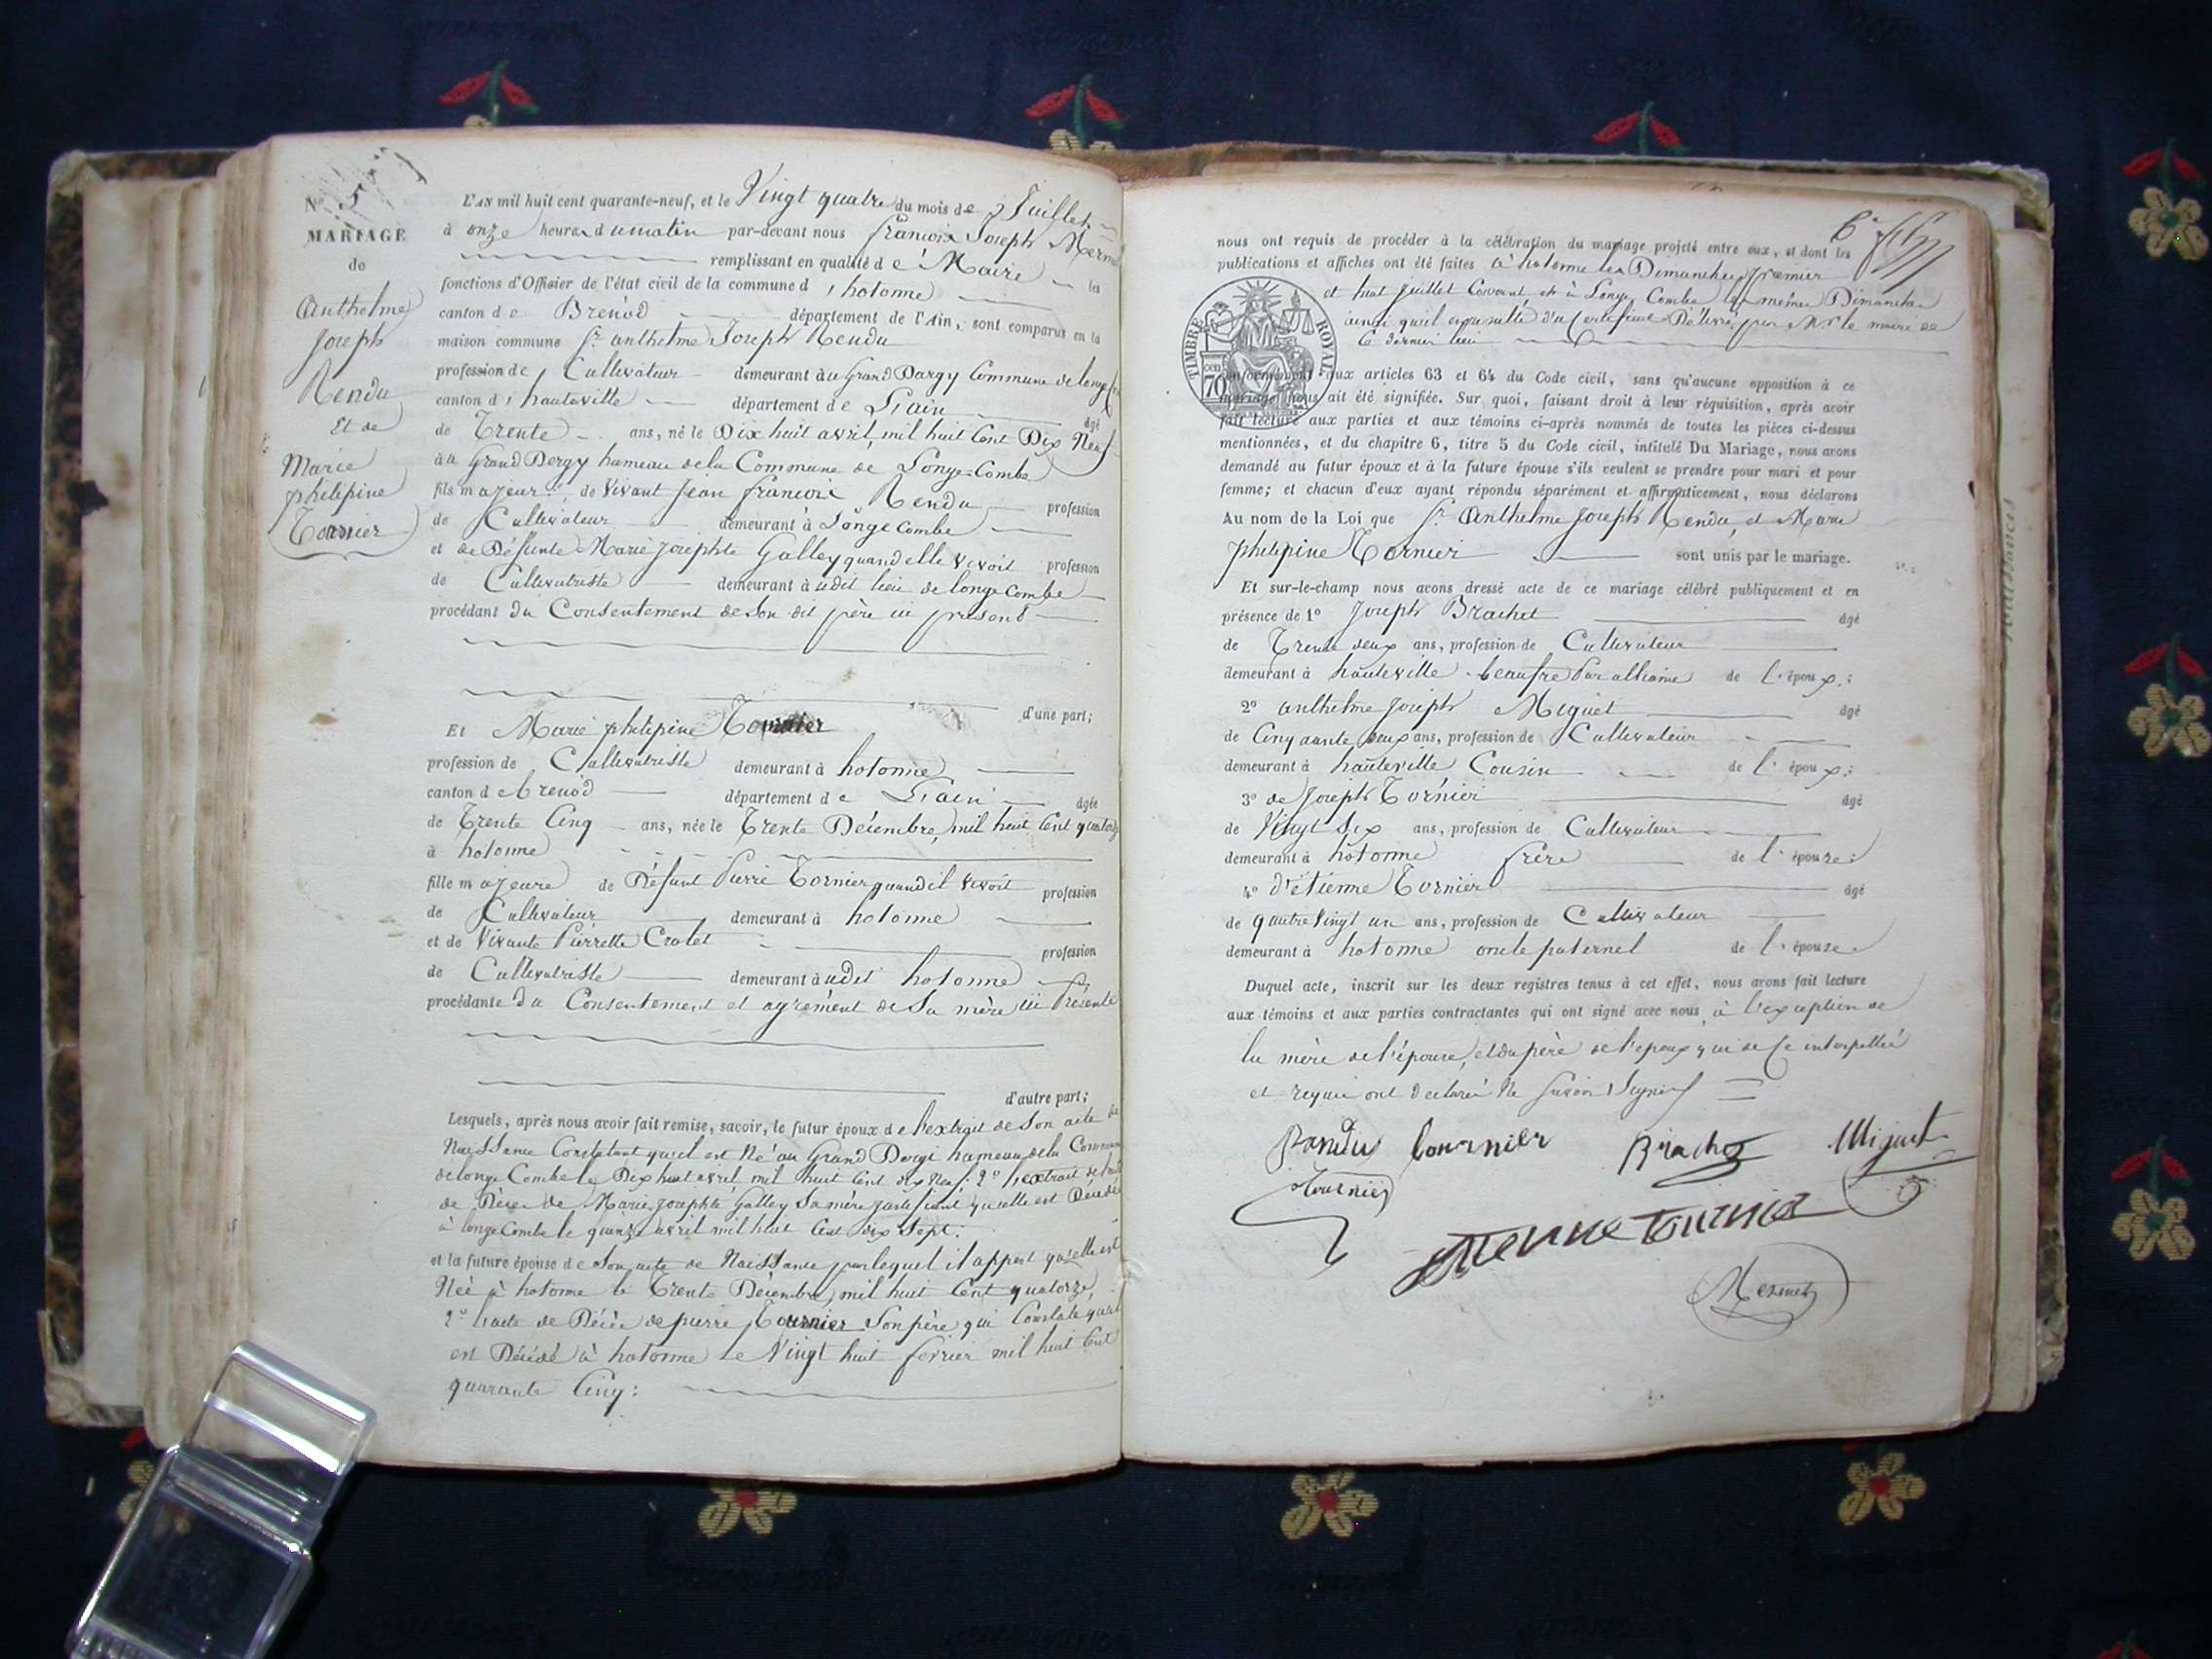 N° 5
MARIAGE
de
Anthelme
Joseph
Rendu
Et de
Marie
philipine
Tornier
L'AN mil huit cent quarante-neuf, et le Vingt quatre du mois de Juillet
à onze heures du matin par-devant nous françois Joseph Mermet
remplissant en qualité de Maire les
fonctions d'Officier de l'état civil de la commune d'hotonne
canton de Brenod département de l'Ain, sont comparus en la
maison commune Sr. anthelme Joseph Rendu
profession de Cultivateur demeurant au Grand Dargy Commune de longe
canton d'hauteville département de L'ain âgé
de Trente ans, né le Dix huit avril mil huit Cent Dix Neuf
au Grand Dergy hameau de la Commune de Longe-Combe
fils majeur de Vivant Jean françois Rendu profession
de Cultivateur demeurant à Longe Combe
et de Défunte Marie josephte Galley quand elle vivoit profession
de Cultivatriste demeurant à udit lieu de longe Combe
procédant du Consentement de Son dit père ici présent
d'une part;
Et Marie philipine Tournier
profession de Cultivatriste demeurant à hotonne
canton de brenod département de L'ain âgée
de Trente Cinq ans, née le Trente Décembre mil huit Cent quatorze
à hotonne
fille majeure de Défunt Pierre Tornier quand il vivoit profession
de Cultivateur demeurant à hotonne
et de Vivante Pierrette Crolet profession
de Cultivatriste demeurant à udit hotonne
procédante du Consentement et agrément de Sa mère ici Présente
d'autre part;
Lesquels, après nous avoir fait remise, savoir, le futur époux de l'extrait de Son acte de
Naissance Constatant qu'il est Né au Grand Dergi hameau de la Commune
de longe Combe le Dix huit avril mil huit Cent dix Neuf: 2° l'extrait de l'acte
de Décès de Marie josephte Galley Sa mère justifiant qu'elle est Décédée
à longe Combe le quinze avril mil huit Cent dix Sept:
et la future épouse de Son acte de Naissance par lequel il appert qu'elle est
Née à hotonne le Trente Décembre mil huit Cent quatorze,
2° l'acte de Décès de pierre Tournier Son père qui Constate qu'il
est Décédé à hotonne le Vingt huit fevrier mil huit Cent
quarante Cinq:
6e
nous ont requis de procéder à la célébration du mariage projeté entre eux, et dont les
publications et affiches ont été faites à hotonne les Dimanches premier
et huit Juillet Courant et à Longe Combe les mêmes Dimanches
ainsi qu'il en résulte du Certificat Délivré par Mr. le maire de
Ce dernier lieu
TIMBRE ROYAL
70
conformément aux articles 63 et 64 du Code civil, sans qu'aucune opposition à ce
mariage nous ait été signifiée. Sur quoi, faisant droit à leur réquisition, après avoir
fait lecture aux parties et aux témoins ci-après nommés de toutes les pièces ci-dessus
mentionnées, et du chapitre 6, titre 5 du Code civil, intitulé Du Mariage, nous avons
demandé au futur époux et à la future épouse s'ils veulent se prendre pour mari et pour
femme; et chacun d'eux ayant répondu séparément et affirmativement, nous déclarons
Au nom de la Loi que Sr. Anthelme Joseph Rendu, et Marie
philipine Tornier sont unis par le mariage.
Et sur-le-champ nous avons dressé acte de ce mariage célébré publiquement et en
présence de 1° Joseph Brachet âgé
de Trente deux ans, profession de Cultivateur
demeurant à hauteville beaufre Par alliance de l'époux;
2° anthelme joseph Miguet âgé
de Cinquante deux ans, profession de Cultivateur
demeurant à hauteville Cousin de l'époux;
3° de Joseph Tornier âgé
de Vingt Six ans, profession de Cultivateur
demeurant à hotonne frère de l'épouze;
4° d'etienne Tornier âgé
de quatre Vingt un ans, profession de Cultivateur
demeurant à hotonne oncle paternel de l'épouze
Duquel acte, inscrit sur les deux registres tenus à cet effet, nous avons fait lecture
aux témoins et aux parties contractantes qui ont signé avec nous à l'exception de
la mère de l'épouse, et du père de l'epoux qui de Ce interpellés
et requis ont déclaré Ne Savoir Signer
Randu tournier Brachet Miguet
Tournier
Etienne Tournier
Mermet